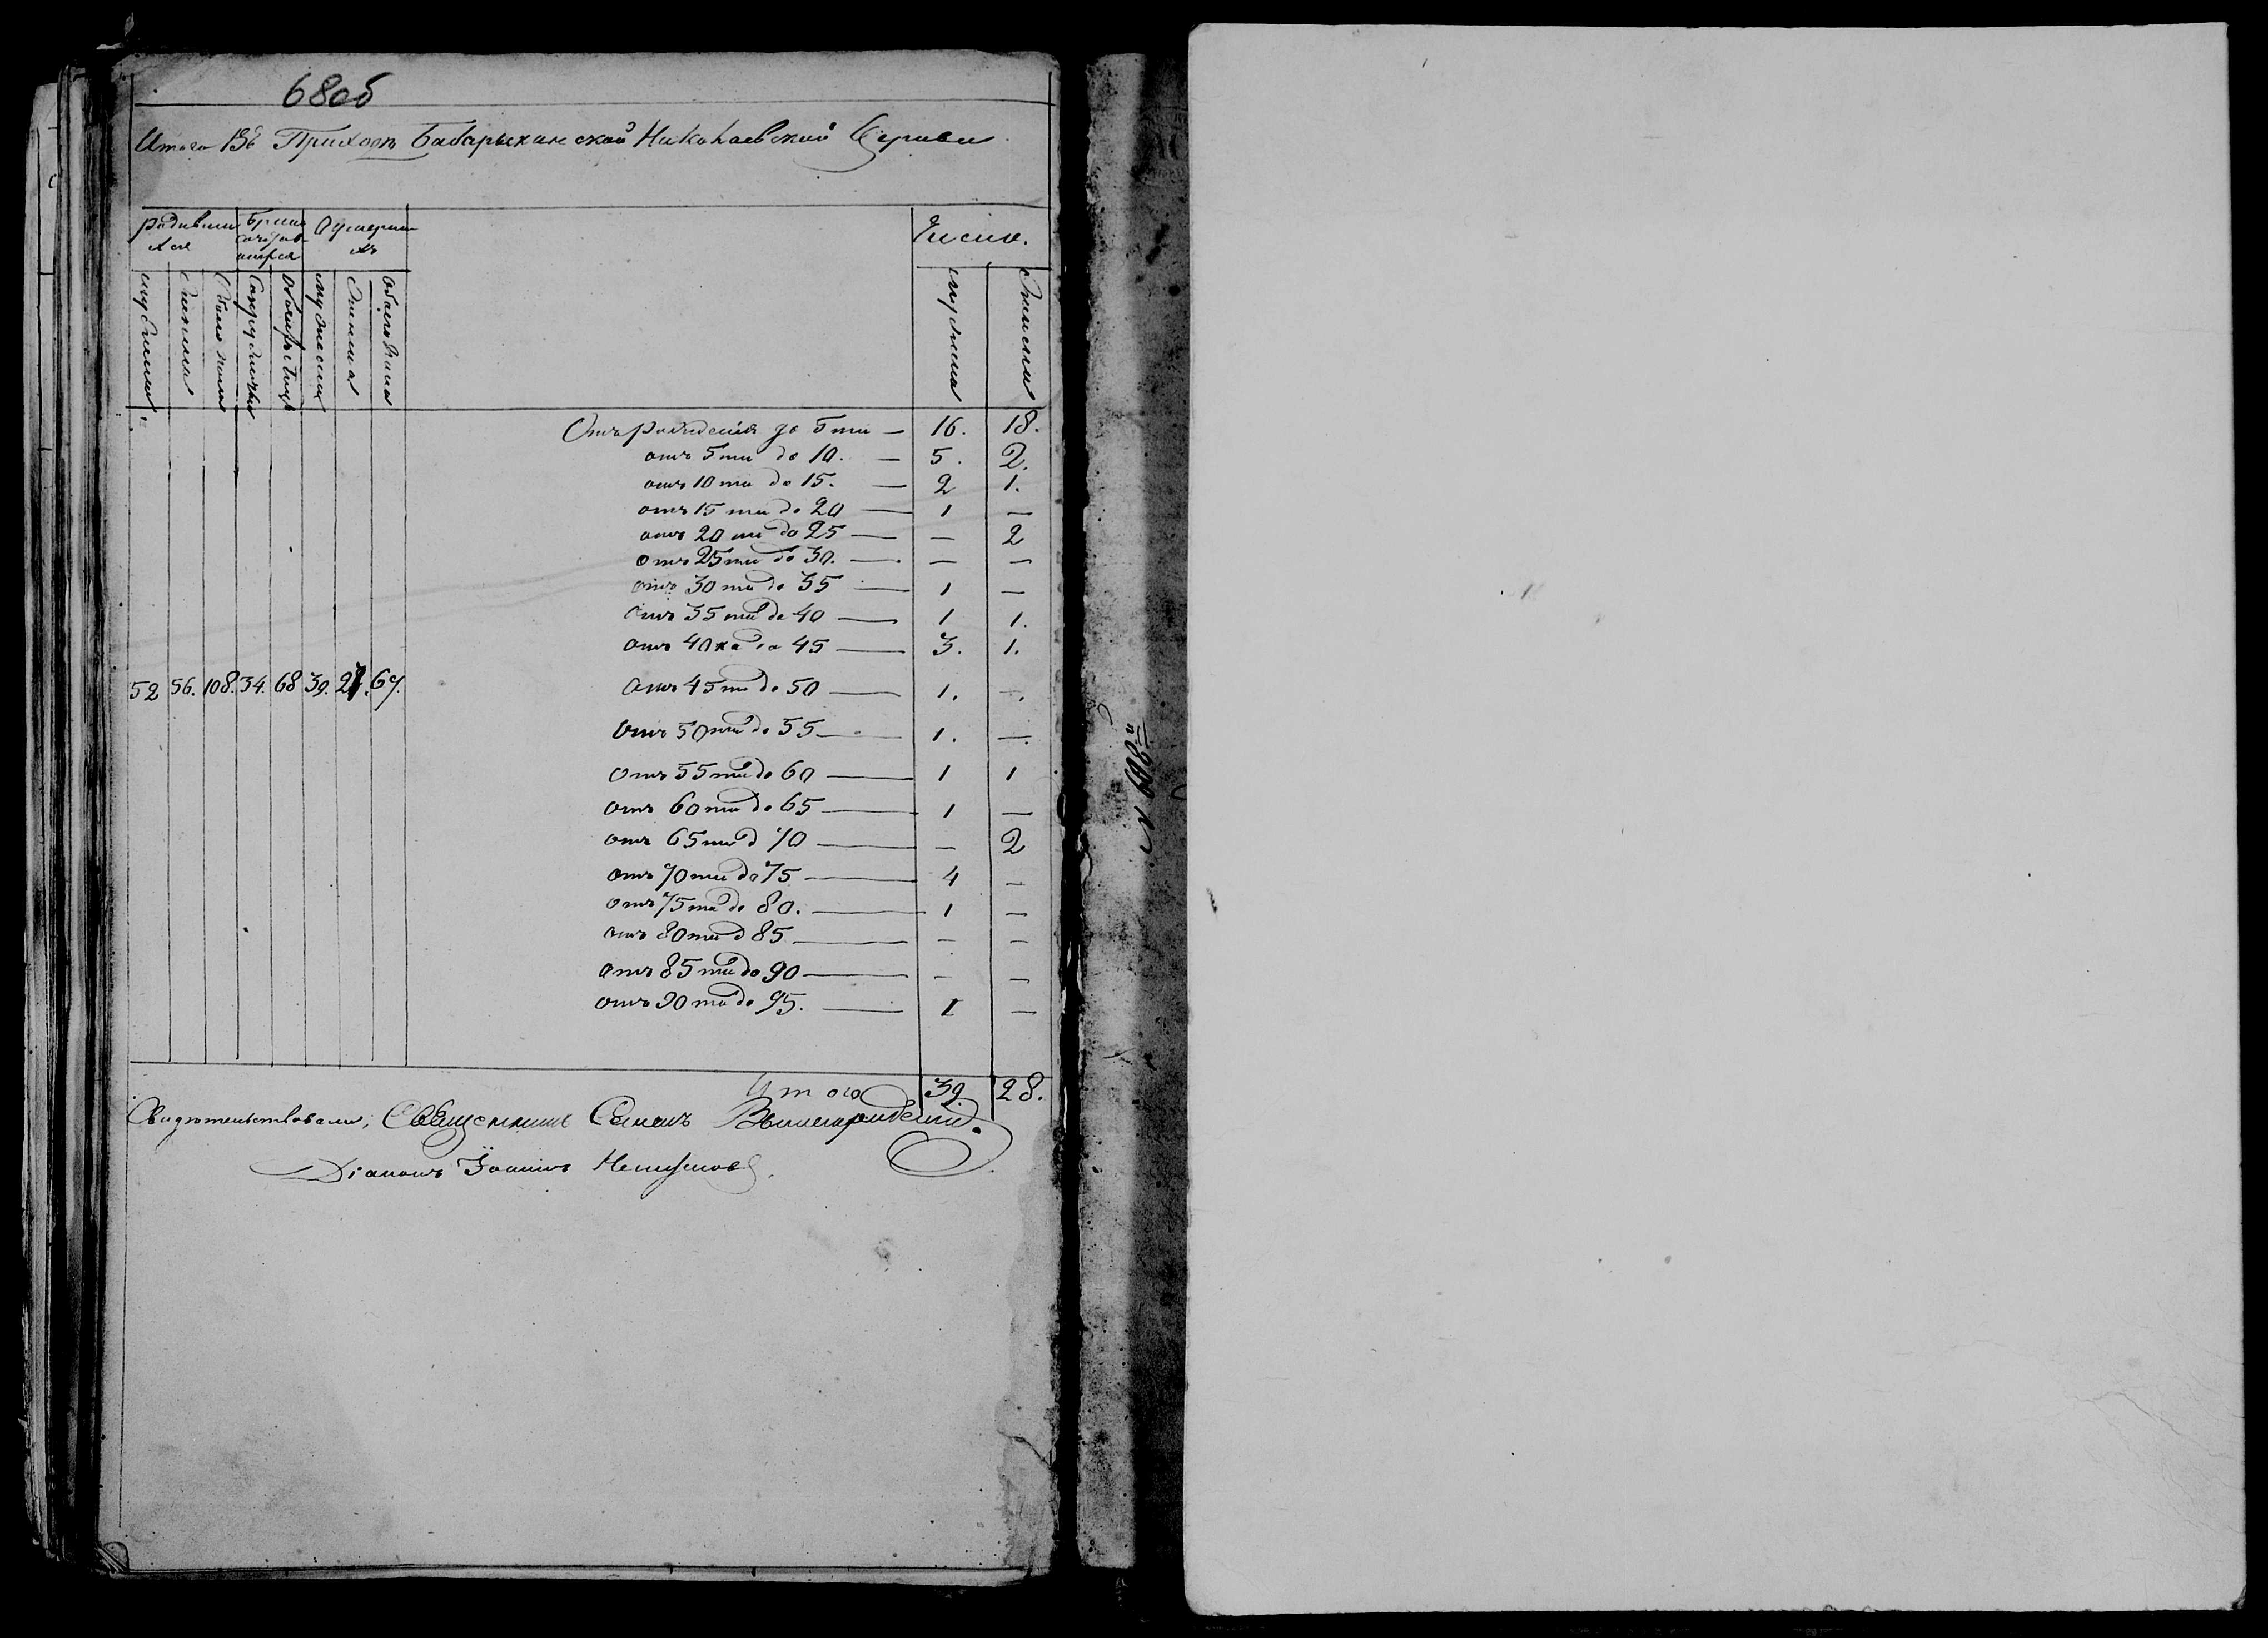 68об
Итого Въ Приходѣ Бабарыкинской Николаевской Церкви
родивших
ся
Брако
сочетав
шихся
О умерш
хъ
Число.
мужеска
женска
обоего пола
Супружествъ
обоихъ лицъ
мужеска
женска
обоего пола
мужеска
женска
Отъ рожденія до 5ти — 16. 18.
отъ 5ти до 10. — 5. 2.
отъ 10ти до 15. — 2 1.
отъ 15ти до 20 — 1 —
отъ 20ти до 25 — — 2
отъ 25ти до 30. — — —
отъ 30ти до 35 — 1 —
отъ 35ти до 40 — 1 1.
отъ 40ка до 45 — 3. 1.
52 56. 108. 34. 68 39. 67.
отъ 45ти до 50 — 1. —.
Отъ 50ти до 55 — 1. —.
отъ 55ти до 60 — 1 1
отъ 60ти до 65 — 1 —
отъ 65ти д 70 — — 2
отъ 70ти до 75 — 4 —
отъ 75ти до 80. — 1 —
отъ 80ти д 85 — — —
отъ 85ти до 90 — — —
отъ 90ти до 95. — 1 —
Итого 39. 28.
Свидетельствовали; Священникъ Симонъ
Діаконъ Іоаннъ